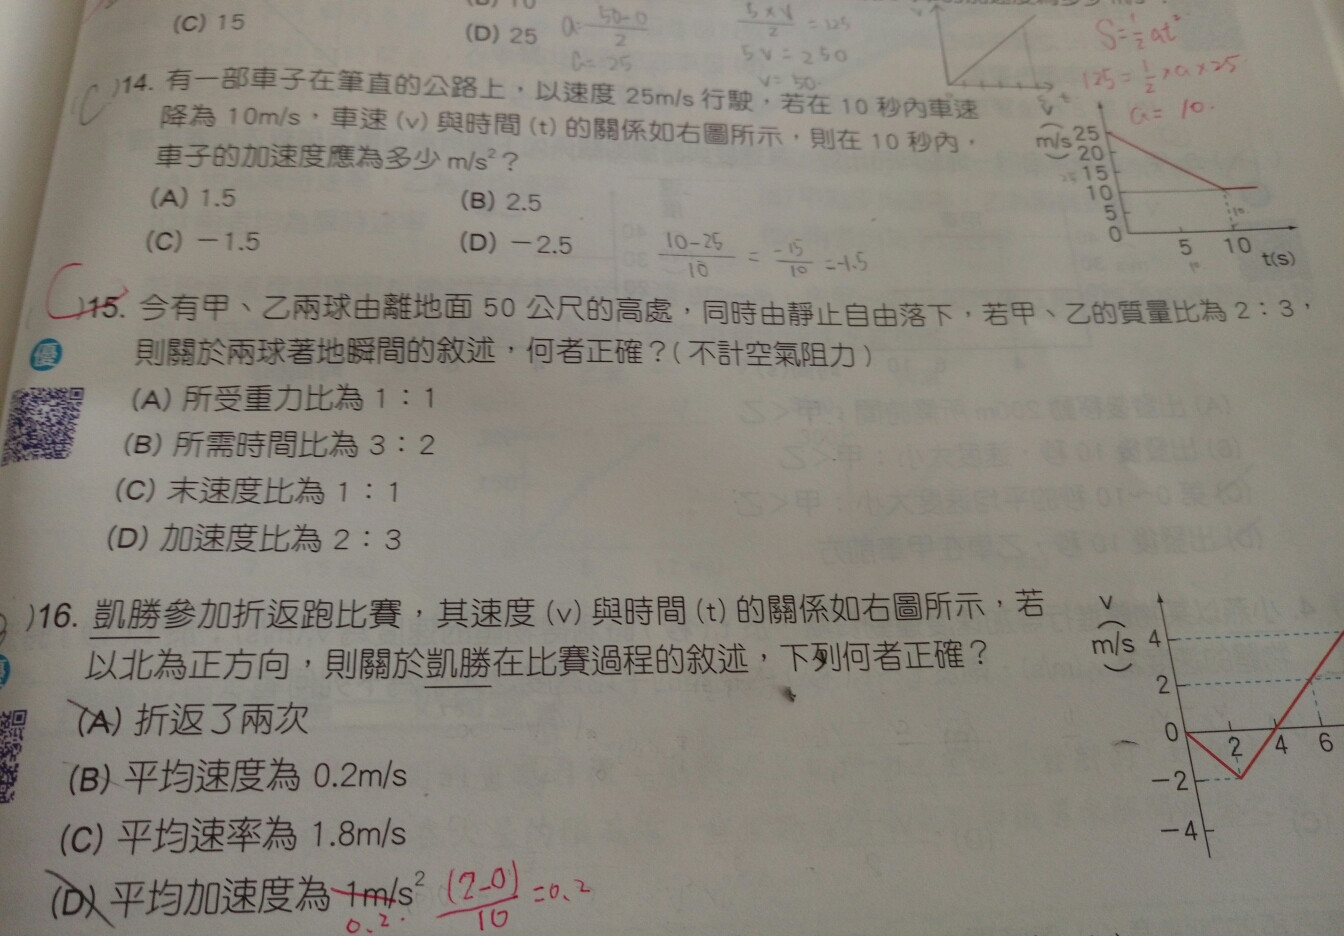 (C) 15
(D) 25
50-0
2
5×V
2
=125
5V=250
V=50
S=½at²
125=½×a×25
a=10
C )14. 有一部車子在筆直的公路上，以速度 25m/s 行駛，若在 10 秒內車速
降為 10m/s，車速 (v) 與時間 (t) 的關係如右圖所示，則在 10 秒內，
車子的加速度應為多少 m/s²？
(A) 1.5
(B) 2.5
(C) －1.5
(D) －2.5
10-25
10
= -15
10
=-1.5
v
m/s
25
20
15
10
5
0
5
10
t(s)
C )15. 今有甲、乙兩球由離地面 50 公尺的高處，同時由靜止自由落下，若甲、乙的質量比為 2：3，
則關於兩球著地瞬間的敘述，何者正確？( 不計空氣阻力 )
優
(A) 所受重力比為 1：1
(B) 所需時間比為 3：2
(C) 末速度比為 1：1
(D) 加速度比為 2：3
)16. 凱勝參加折返跑比賽，其速度 (v) 與時間 (t) 的關係如右圖所示，若
以北為正方向，則關於凱勝在比賽過程的敘述，下列何者正確？
(A) 折返了兩次
(B) 平均速度為 0.2m/s
(C) 平均速率為 1.8m/s
(D) 平均加速度為 1m/s²
0.2
(2-0)
10
=0.2
v
m/s
4
2
0
－2
－4
2
4
6